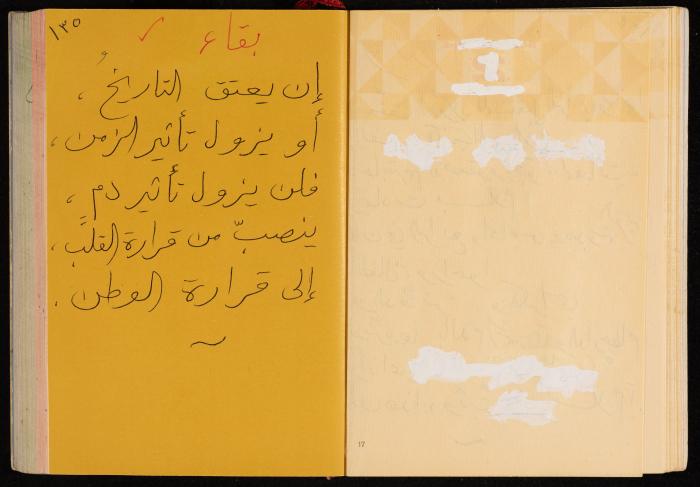 ١٣٥
بقاء
إن يعتق التاريخُ ،
أو يزول تأثير الزمن ،
فلن يزول تأثير دم ،
ينصبّ من قرارة القلب ،
إلى قرارة الوطن .
1
17